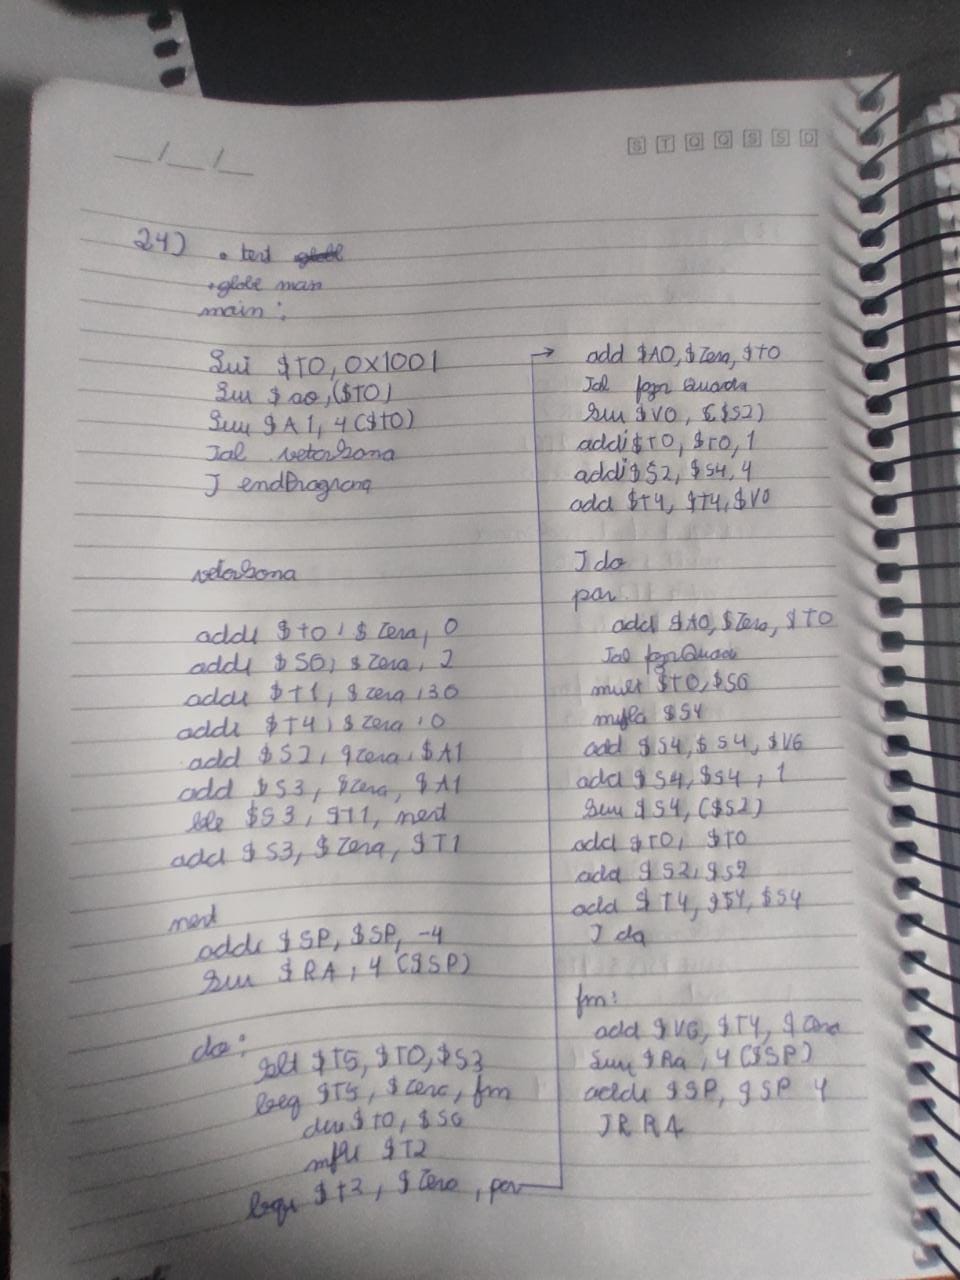 S T Q Q S S D
24) . text
.globl main
main:
lui $T0, 0x1001
lw $a0, ($T0)
lw $A1, 4($T0)
Jal vetorSoma
J endProgram
vetorSoma
addi $t0, $zero, 0
addi $S6, $zero, 2
addi $T1, $zero, 30
addi $T4, $zero, 0
add $S2, $zero, $A1
add $S3, $zero, $A1
ble $S3, $T1, next
add $S3, $zero, $T1
next
addi $SP, $SP, -4
sw $RA, 4($SP)
do:
slt $T5, $T0, $S3
beq $T5, $zero, fim
div $T0, $S6
mfhi $T2
beq $t2, $zero, par
add $A0, $zero, $t0
Jal
sw $V0, ($S2)
addi $T0, $T0, 1
addi $S2, $S4, 4
add $T4, $T4, $V0
J do
par
add $A0, $zero, $T0
Jal
mult $T0, $S6
mflo $S4
add $S4, $S4, $V6
add $S4, $S4, 1
sw $S4, ($S2)
add $T0, $T0
add $S2, $S2
add $T4, $S4
J do
fim:
add $V6, $T4, $zero
lw $Ra, 4($SP)
addi $SP, $SP 4
JR RA